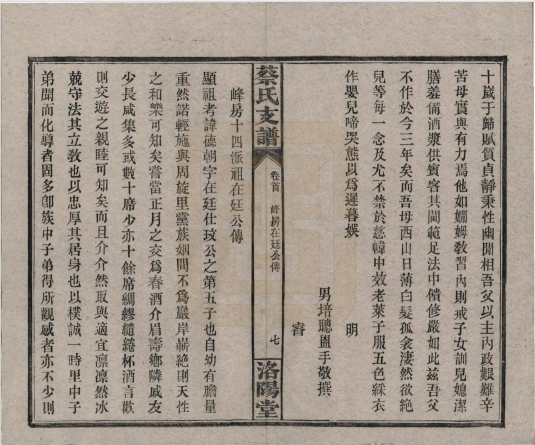 十歲于歸賦質貞靜秉性幽閒相吾父以主內政艱難辛
苦母實與有力焉他如嫺姆教習內則戒子女訓兒媳潔
膳羞備酒漿供賓客其閫範足法中饋修嚴如此茲吾父
不作於今三年矣而吾母西山日薄白髮孤衾淒然欲絶
兒等每一念及尤不禁於慈幃中效老萊子服五色綵衣
作嬰兒啼哭態以爲遲暮娛
明
男培聽盥手敬撰
睿
蔡氏支譜
卷首
峰房在廷公傳
七
洛陽堂
峰房十四派祖在廷公傳
顯祖考諱德朝字在廷仕玟公之第五子也自幼有膽量
重然諾輕施與周旋里黨族姻間不爲巖岸嶄絶則天性
之和樂可知矣嘗當正月之交爲春酒介眉壽鄉隣戚友
少長咸集多或數十席少亦十餘席綢繆繾綣杯酒言歡
則交遊之親睦可知矣而且介介然取與適宜凜凜然冰
兢守法其立教也以忠厚其居身也以樸誠一時里中子
弟聞而化導者固多卽族中子弟得所觀感者亦不少則